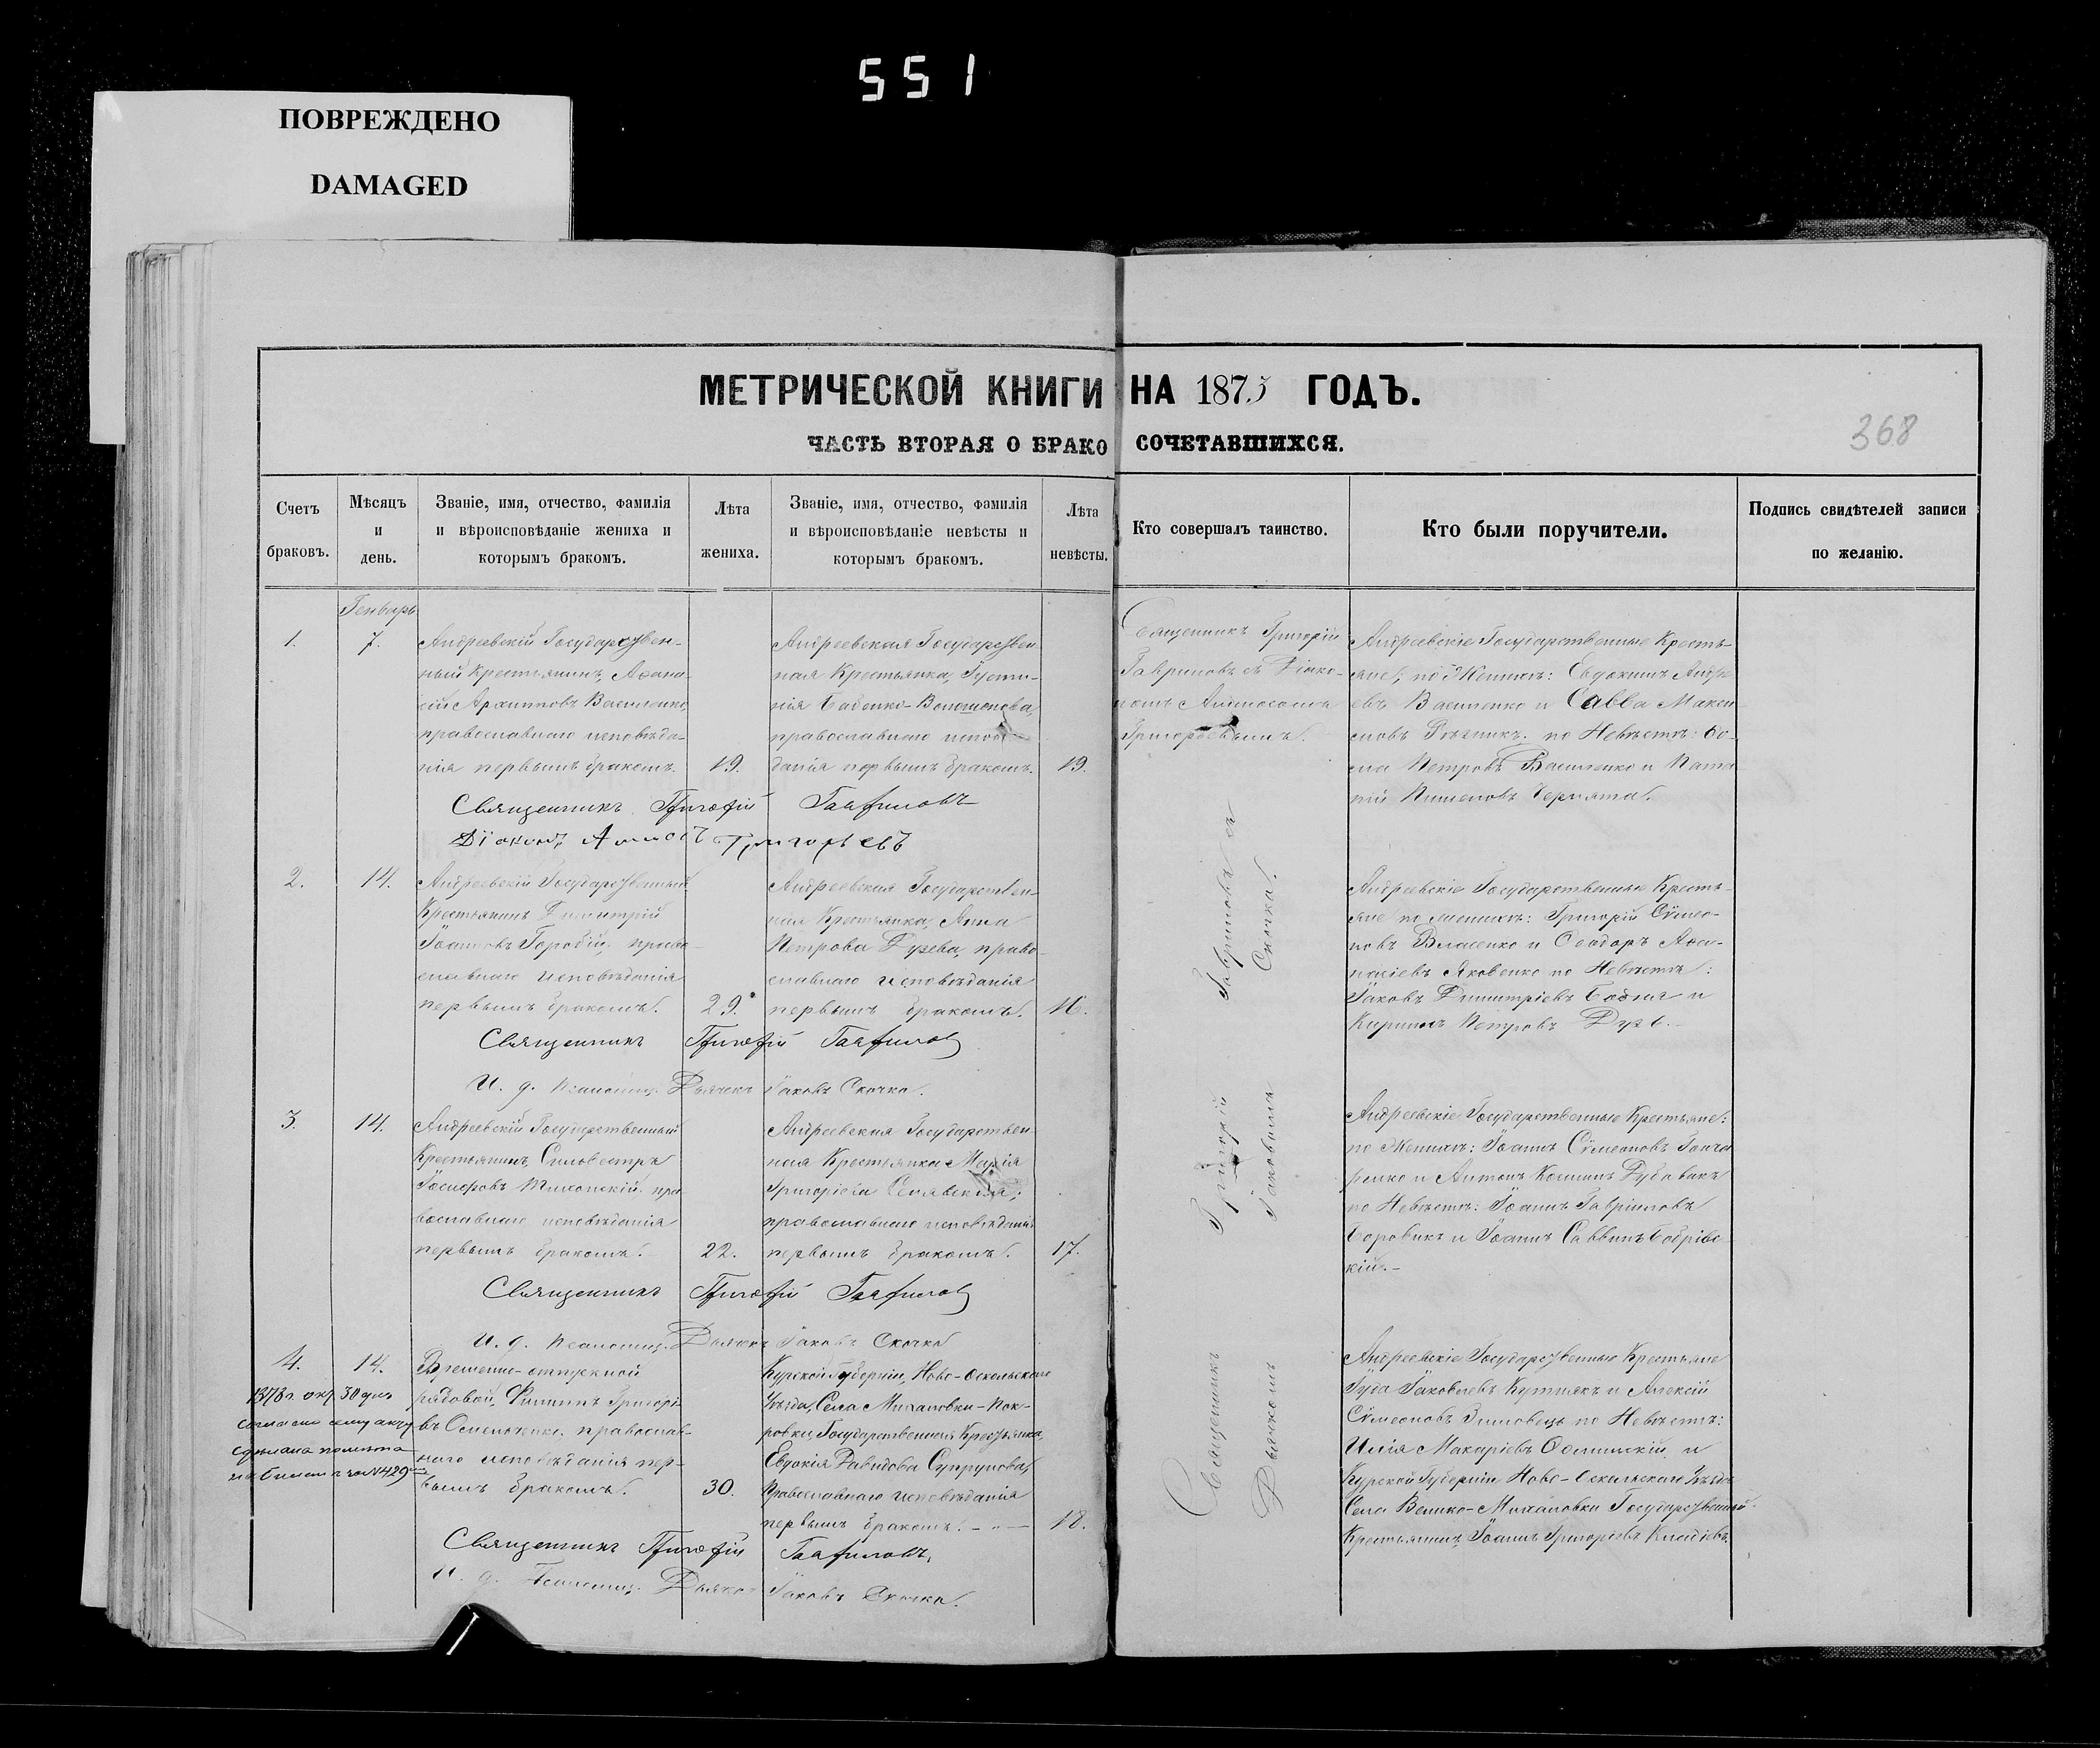 551
ПОВРЕЖДЕНО
DAMAGED
МЕТРИЧЕСКОЙ КНИГИ НА 1875 ГОДЪ.
ЧАСТЬ ВТОРАЯ О БРАКОСОЧЕТАВШИХСЯ.
368
Счетъ браковъ.
Мѣсяцъ и день.
Званіе, имя, отчество, фамилія и вѣроисповѣданіе жениха и которымъ бракомъ.
Лѣта жениха.
Званіе, имя, отчество, фамилія и вѣроисповѣданіе невѣсты и которымъ бракомъ.
Лѣта невѣсты.
Кто совершалъ таинство.
Кто были поручители.
Подпись свидѣтелей записи по желанію.
Генварь
1.
7.
Андреевскій Государствен-
ный Крестьянинъ, Афана-
сій Архиповъ Василенко,
православнаго исповѣда-
нія первымъ бракомъ.
19.
Андреевская Государствен
ная Крестьянка, Густи-
нія Бабенко-Волошонова,
православнаго испов
данія первымъ бракомъ.
19.
Священникъ Григорій
Гавриловъ съ Діако-
номъ
Григорьевымъ.
Андреевскіе Государственные Кресть-
яне; по Женихѣ: Евдокимъ Андре
евъ Василенко и Савва Макси
мовъ Рѣзникъ. по Невѣстѣ: Ѳо-
ма Петровъ Василенко и Ипата
тій Пименовъ Чернята.
Священникъ Григорій Гавриловъ
Діаконъ Григорьевъ
2.
14.
Андреевскій Государственный
Крестьянинъ Димитрій
Іоанновъ Горобій, право-
славнаго исповѣданія
первымъ бракомъ.
29.
Андреевская Государствен-
ная Крестьянка, Анна
Петрова Дузева, право-
славнаго исповѣданія
первымъ бракомъ.
16.
Андреевскіе Государственные Кресть-
яне по женихѣ: Григорій Сѵмео-
новъ Власенко и Ѳеодоръ Афа-
насіевъ Яковенко по Невѣстѣ:
Іаковъ Димитріевъ и
Кириллъ Петровъ Дузь.
Священникъ Григорій Гавриловъ
И. д. Псаломщ. Дьячекъ Іаковъ Скочко.
3.
14.
Андреевскій Государственный
Крестьянинъ, Сильвестръ
Іосифовъ Тихонскій пра-
вославнаго исповѣданія
первымъ бракомъ.
22.
Андреевская Государствен-
ная Крестьянка Марія
Григоріева Синявская;
православнаго исповѣданія
первымъ бракомъ.
17.
Андреевскіе Государственные Крестьяне:
по Женихѣ: Іоаннъ Сѵмеоновъ Гонча
ренко и Антонъ Косминъ Дубовикъ
по Невѣстѣ: Іоаннъ Гавріиловъ
Боровикъ и Іоаннъ Саввинъ Бобрівс
кій.-
Священникъ Григорій Гавриловъ
И. д. Псаломщ. Дьячекъ Іаковъ Скочко
Священникъ Григорій Гавриловъ съ
Дьячкомъ Іаковомъ Скочко.
4.
14.
1878 г. окт 30 дня
согласно сему акту
сдѣлана помѣтка
на билетѣ за N 429
Временно-отпускной
рядовой, Филиппъ Григорі-
евъ православ-
наго исповѣданія пер-
вымъ бракомъ.
30.
Курской Губерніи, Ново-Оскольскаго
Уѣзда, Села Михаловки-Пок-
ровки, Государственная Крестьянка,
Евдокія Давидова Супрунова,
Православнаго исповѣданія
первымъ бракомъ.
18.
Андреевскіе Государственные Крестьяне
Іуда Іаковлевъ Кутнякъ и Алексій
Сѵмеоновъ Зимовецъ по Невѣстѣ:
Илія Макаріевъ и
Курской Губерніи Ново-Оскольскаго Уѣзда
Села Велико-Михаловки Государственный
Крестьянинъ Іоаннъ Григоріевъ
Священникъ Григорій Гавриловъ.
И. д. Псаломщ. Дьячекъ Іаковъ Скочко.